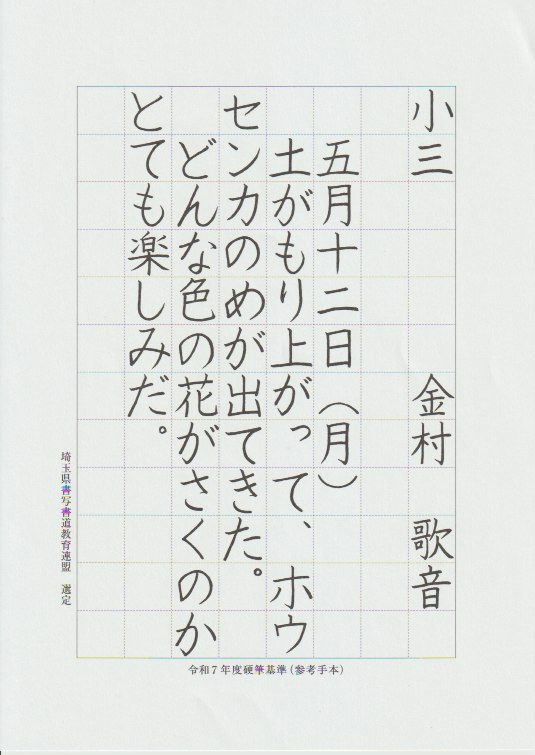 小三　金村　歌音
五月十二日（月）
土がもり上がって、ホウ
センカのめが出てきた。
どんな色の花がさくのか
とても楽しみだ。
埼玉県書写書道教育連盟　選定
令和7年度硬筆基準（参考手本）